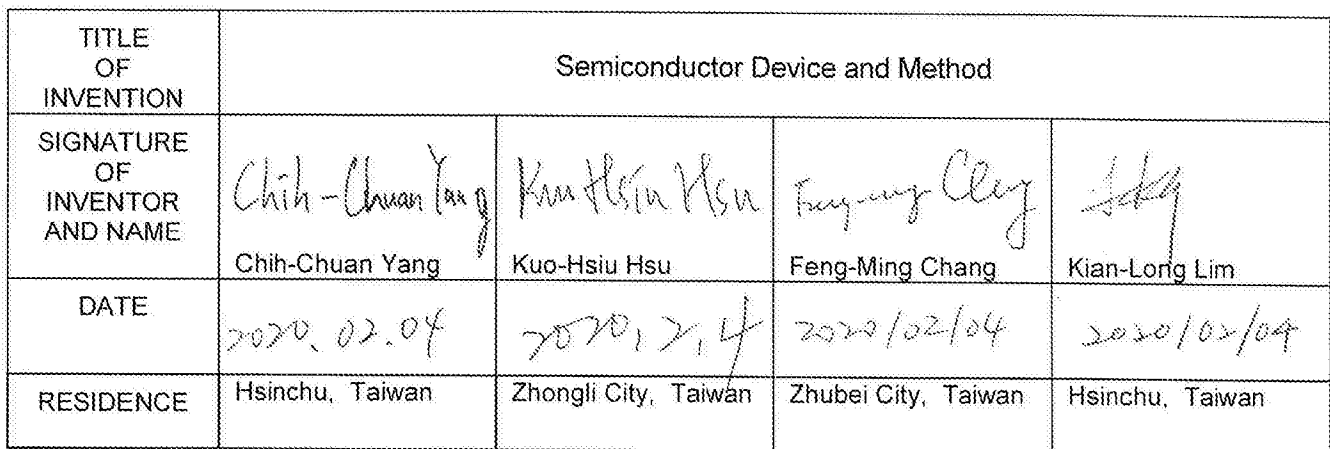 TITLE
OF
INVENTION
Semiconductor Device and Method
SIGNATURE
OF
INVENTOR
AND NAME
Chih-Chuan Yang
Kuo Hsiu Hsu
Chih-Chuan Yang
Kuo-Hsiu Hsu
Feng-Ming Chang
Kian-Long Lim
DATE
2020.02.04
2020,2,4
2020/02/04
2020/02/04
RESIDENCE
Hsinchu, Taiwan
Zhongli City, Taiwan
Zhubei City, Taiwan
Hsinchu, Taiwan